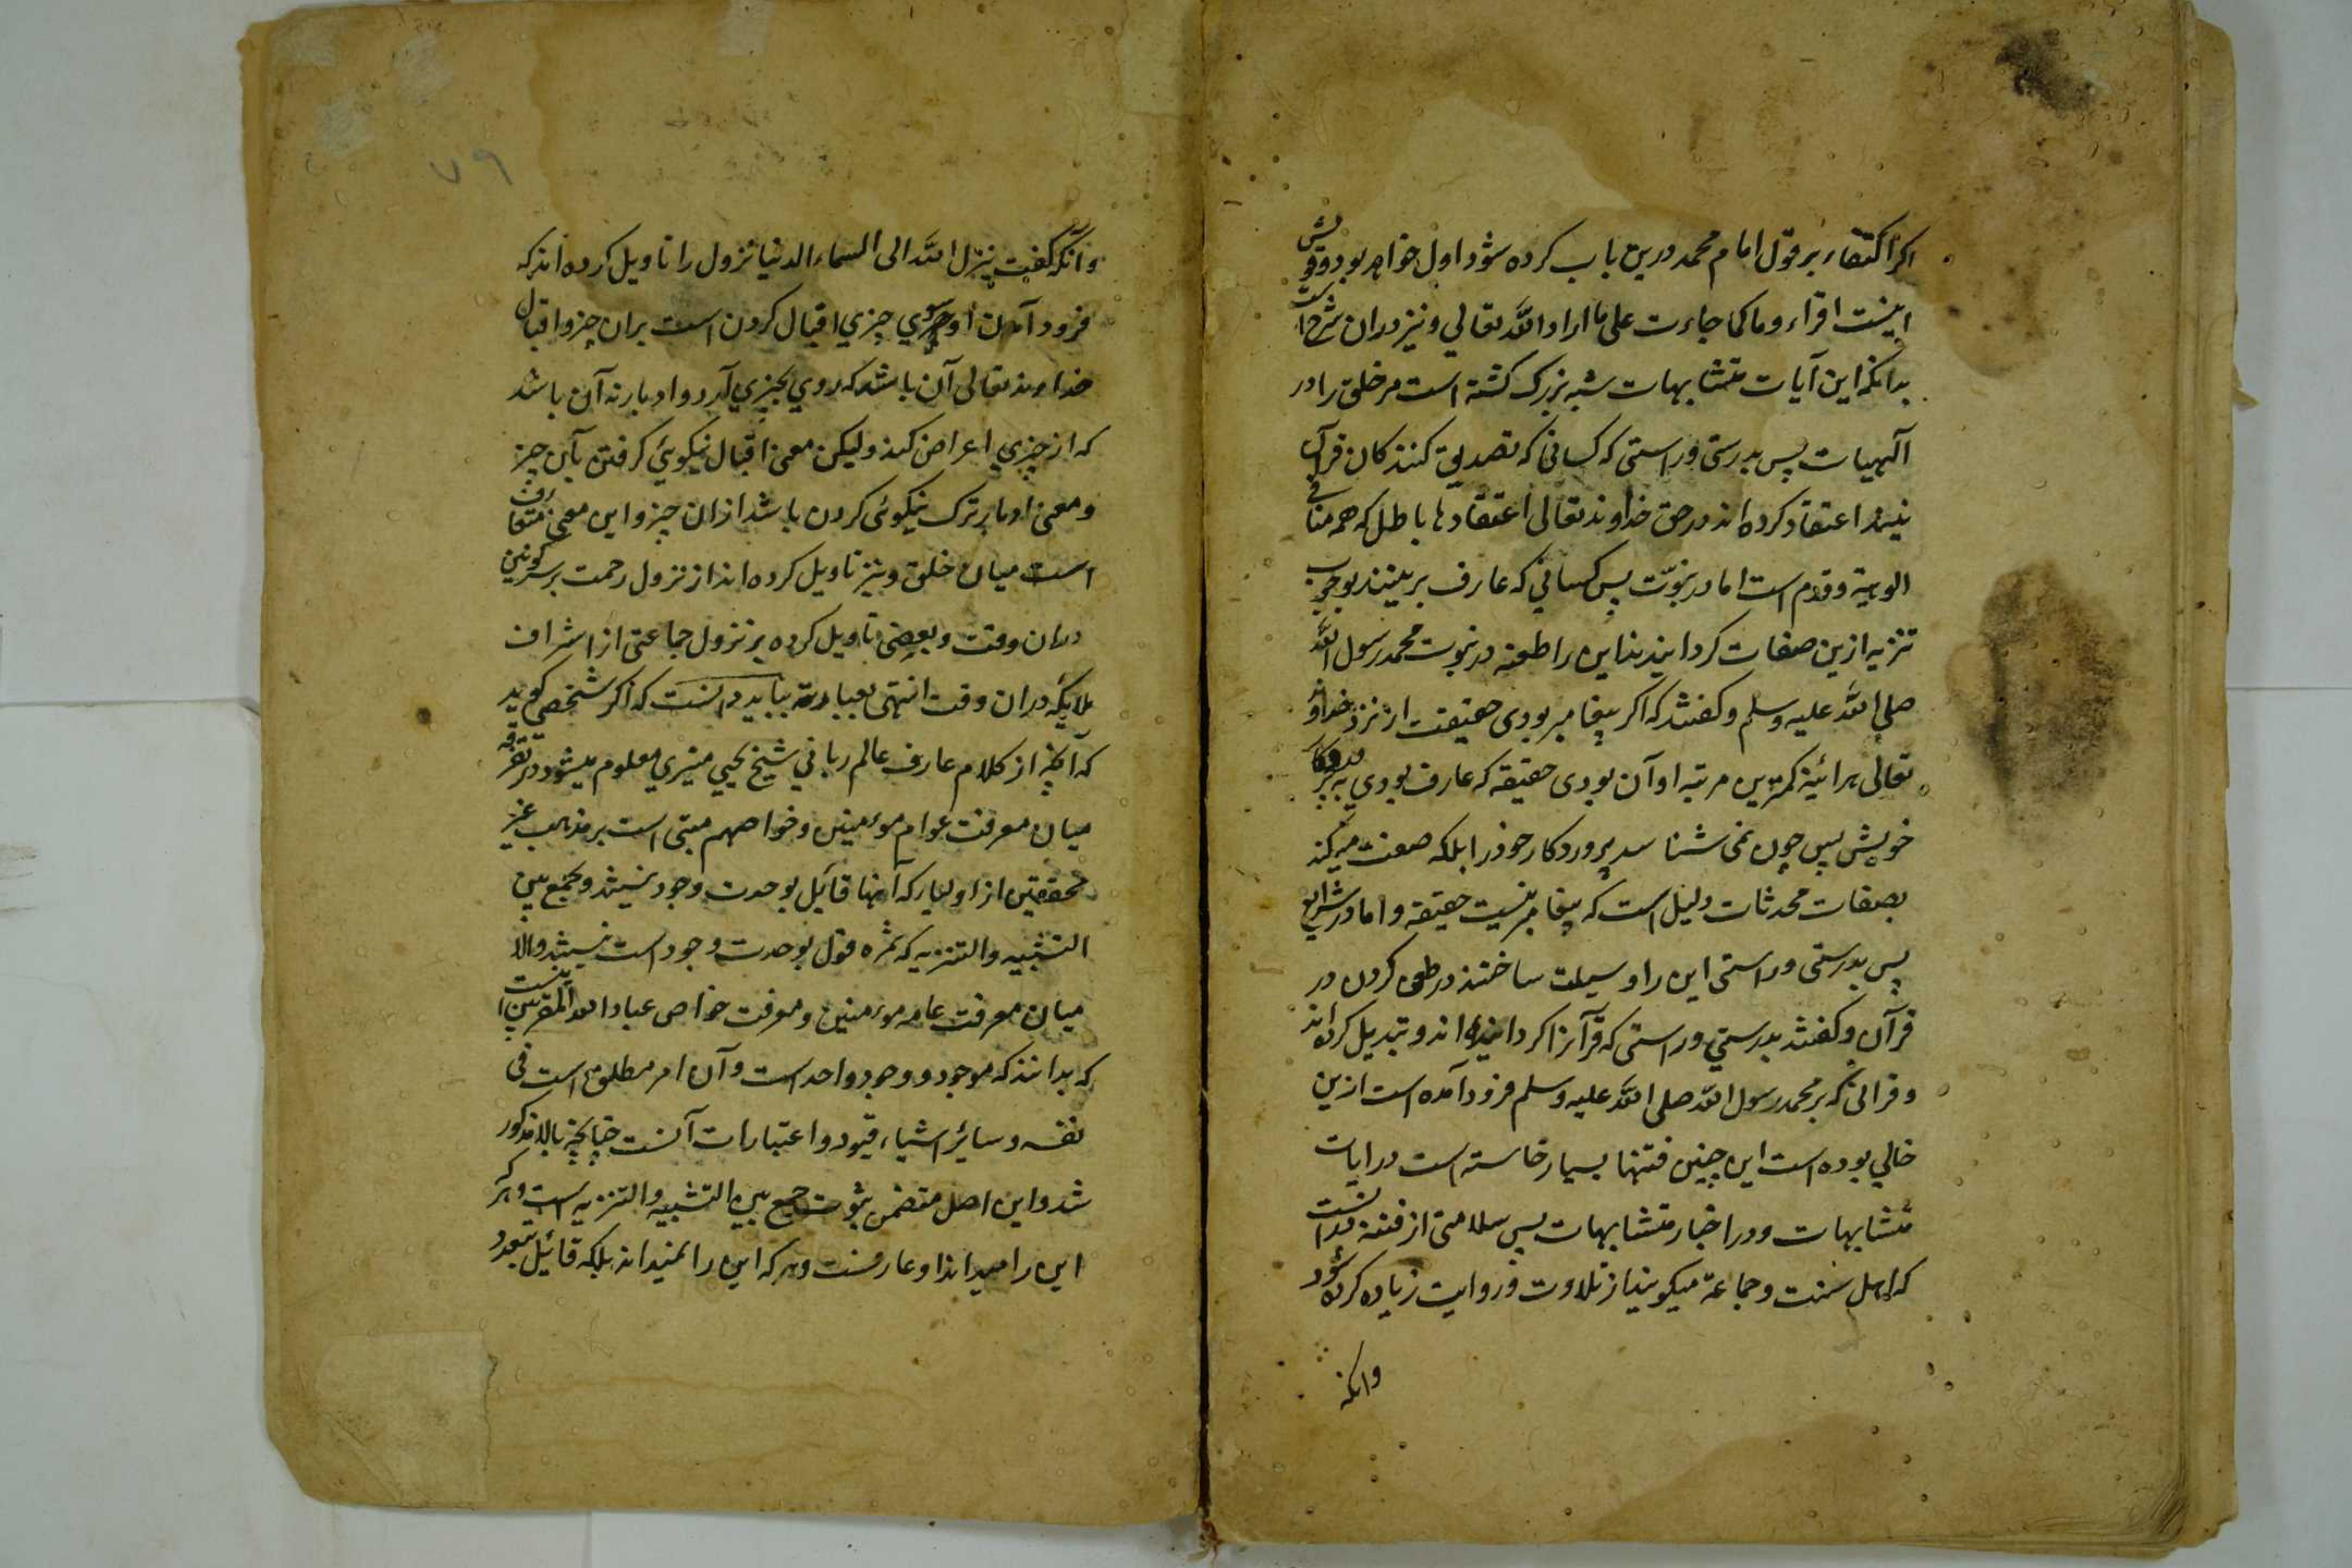 اکر اکتفاء بر قول امام محمد درین باب کرده شود اول خواهد بود و قولش
اینست اقراء وها کما جاءت علی ما اراد الله تعالی و نیز دران شرح است
بدانکه این آیات متشابهات شبه بزرک کشته است مر خلق را در
آلهیات پس بدرستی و راستی که کسانی که تصدیق کنندکان قرآن
نیند اعتقاد کرده اند در حق خداوند تعالی اعتقادها باطل که همه منافی
الوهیة و قدم است اما در نبوّت پس کسانی که عارف برینند بوجوب
تنزیه ازین صفات کردانیدند این را طعنه در نبوت محمد رسول الله
صلی الله علیه وسلم و کفتند که اکر پیغامبر بودی حقیقت از نزد خداوند
تعالی هرائینه کمترین مرتبه او آن بودی حقیقة که عارف بودی به پروردکار
خویش پس چون نمی شناسد پروردکار خود را بلکه صفت میکند
بصفات محدثات دلیل است که پیغامبر نیست حقیقة و اما در شرایع
پس بدرستی و راستی این را وسیلت ساختند در طعن کردن در
قرآن و کفتند بدرستی و راستی که قرآنرا کردانیده اند و تبدیل کرده اند
و قرانی که بر محمد رسول الله صلی الله علیه وسلم فرود آمده است ازین
خالی بوده است این چنین فتنها بسیار خاسته است در ایات
متشابهات و در اخبار متشابهات پس سلامتی از فتنه در انست
که اهل سنت و جماعة میکویند از تلاوت و روایت زیاده کرده نشود
وانکه
۷۹
وآنکه کفت ینزل الله الی السماء الدنیا نزول را تاویل کرده اند که
فرود آمدن او سوی چیزی اقبال کردن است بران چیز و اقبال
خداوند تعالی آن باشد که روی بچیزی آرد و ادبار نه آن باشد
که از چیزی اعراض کند ولیکن معنی اقبال نیکویی کرفتن بآن چیز
و معنی ادبار ترک نیکوئی کردن باشد ازان چیز و این معنی متعارف
است میان خلق و نیز تاویل کرده اند از نزول رحمت بر سر کونین
دران وقت و بعضی تاویل کرده بر نزول جماعتی از اشراف
ملایکه دران وقت انتهی بعبارته بباید دانست که اکر شخصی کوید
که آنچه از کلام عارف عالم ربانی شیخ یحیی منیری معلوم میشود در تفرقه
میان معرفت عوام مومنین و خواصهم مبنی است بر مذهب غیر
محققین از اولیا که آنها قایل بوحدت وجود نیستند و بجمع بین
التشبیه والتنزیه که ثمره قول بوحدت وجود است نیستند والا
میان معرفت عامه مومنین و معرفت خواص عباد الله المقربین اینست
که بدانند که موجود و وجود واحد است و آن امر مطلق است فی
نفسه و سائر اشیاء قیود و اعتبارات آنست چنانچه بالا مذکور
شد و این اصل متضمن ثبوت جمع بین التشبیه والتنزیه است و هر که
این را میداند او عارفست و هر که این را نمیداند بلکه قائل بتعدد